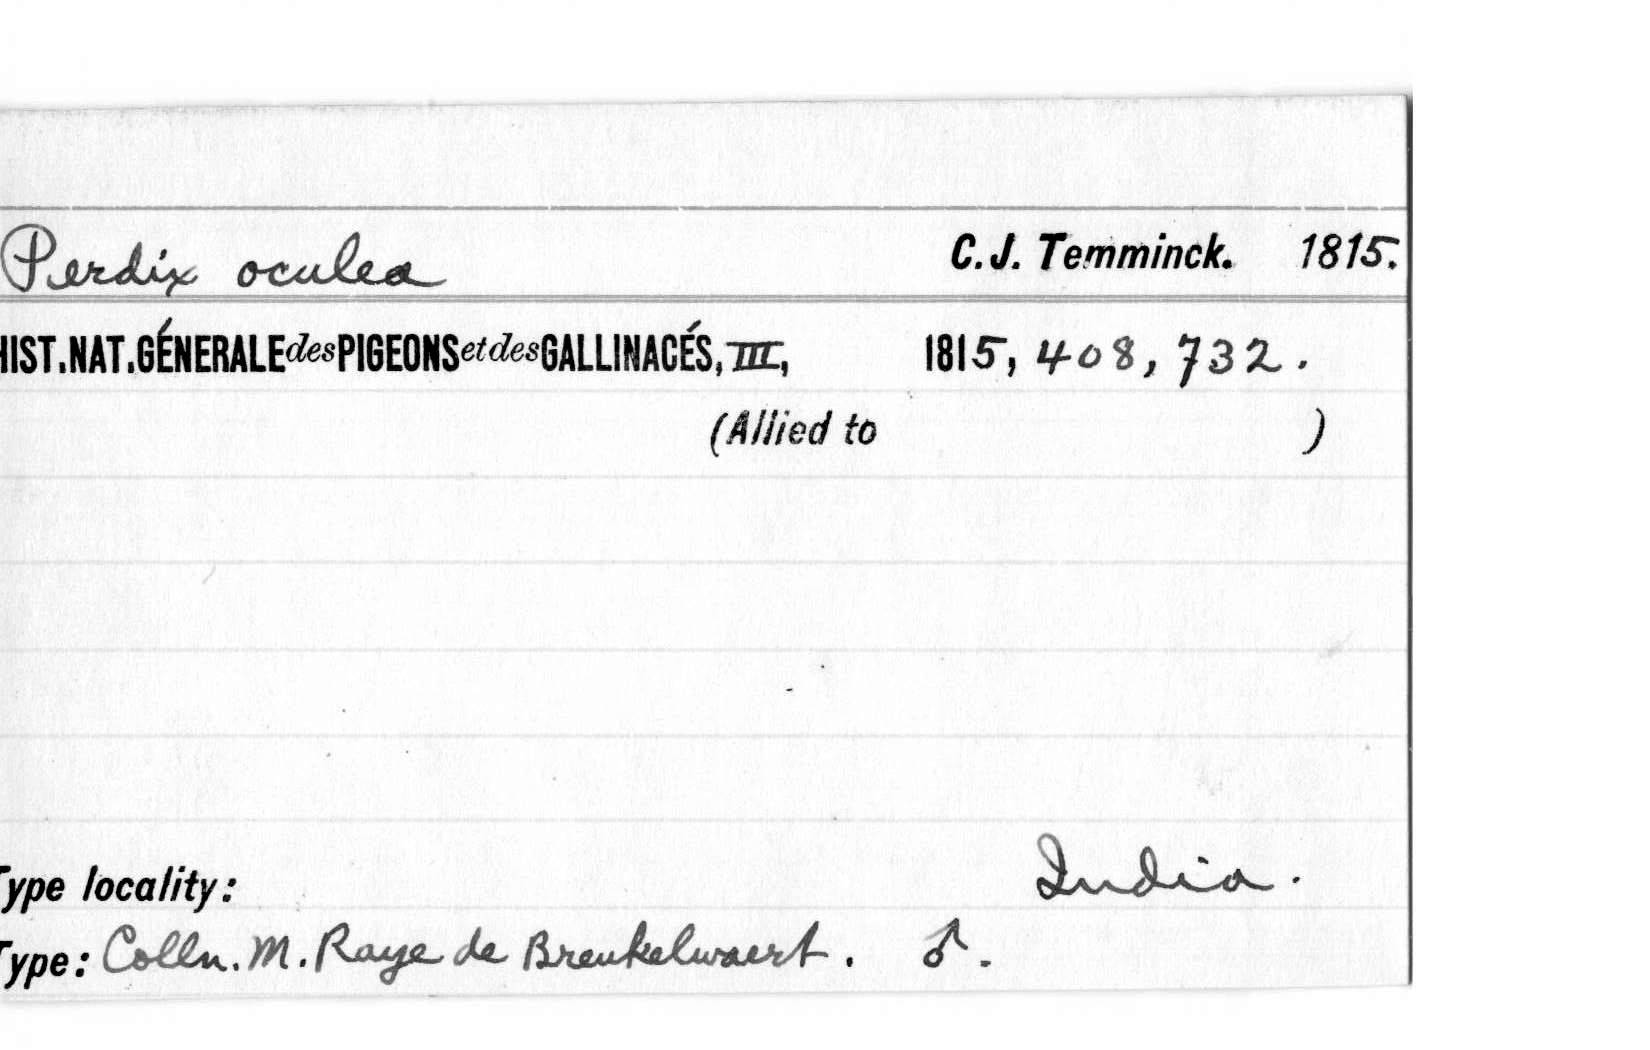 Perdix oculea C. J. Temminck. 1815.
HIST. NAT. GÉNERALE des PIGEONS et des GALLINACÉS, III, 1815, 408, 732.
(Allied to )
Type locality: India.
Type: Colln. M. Raye de Breukelwaert. ♂.